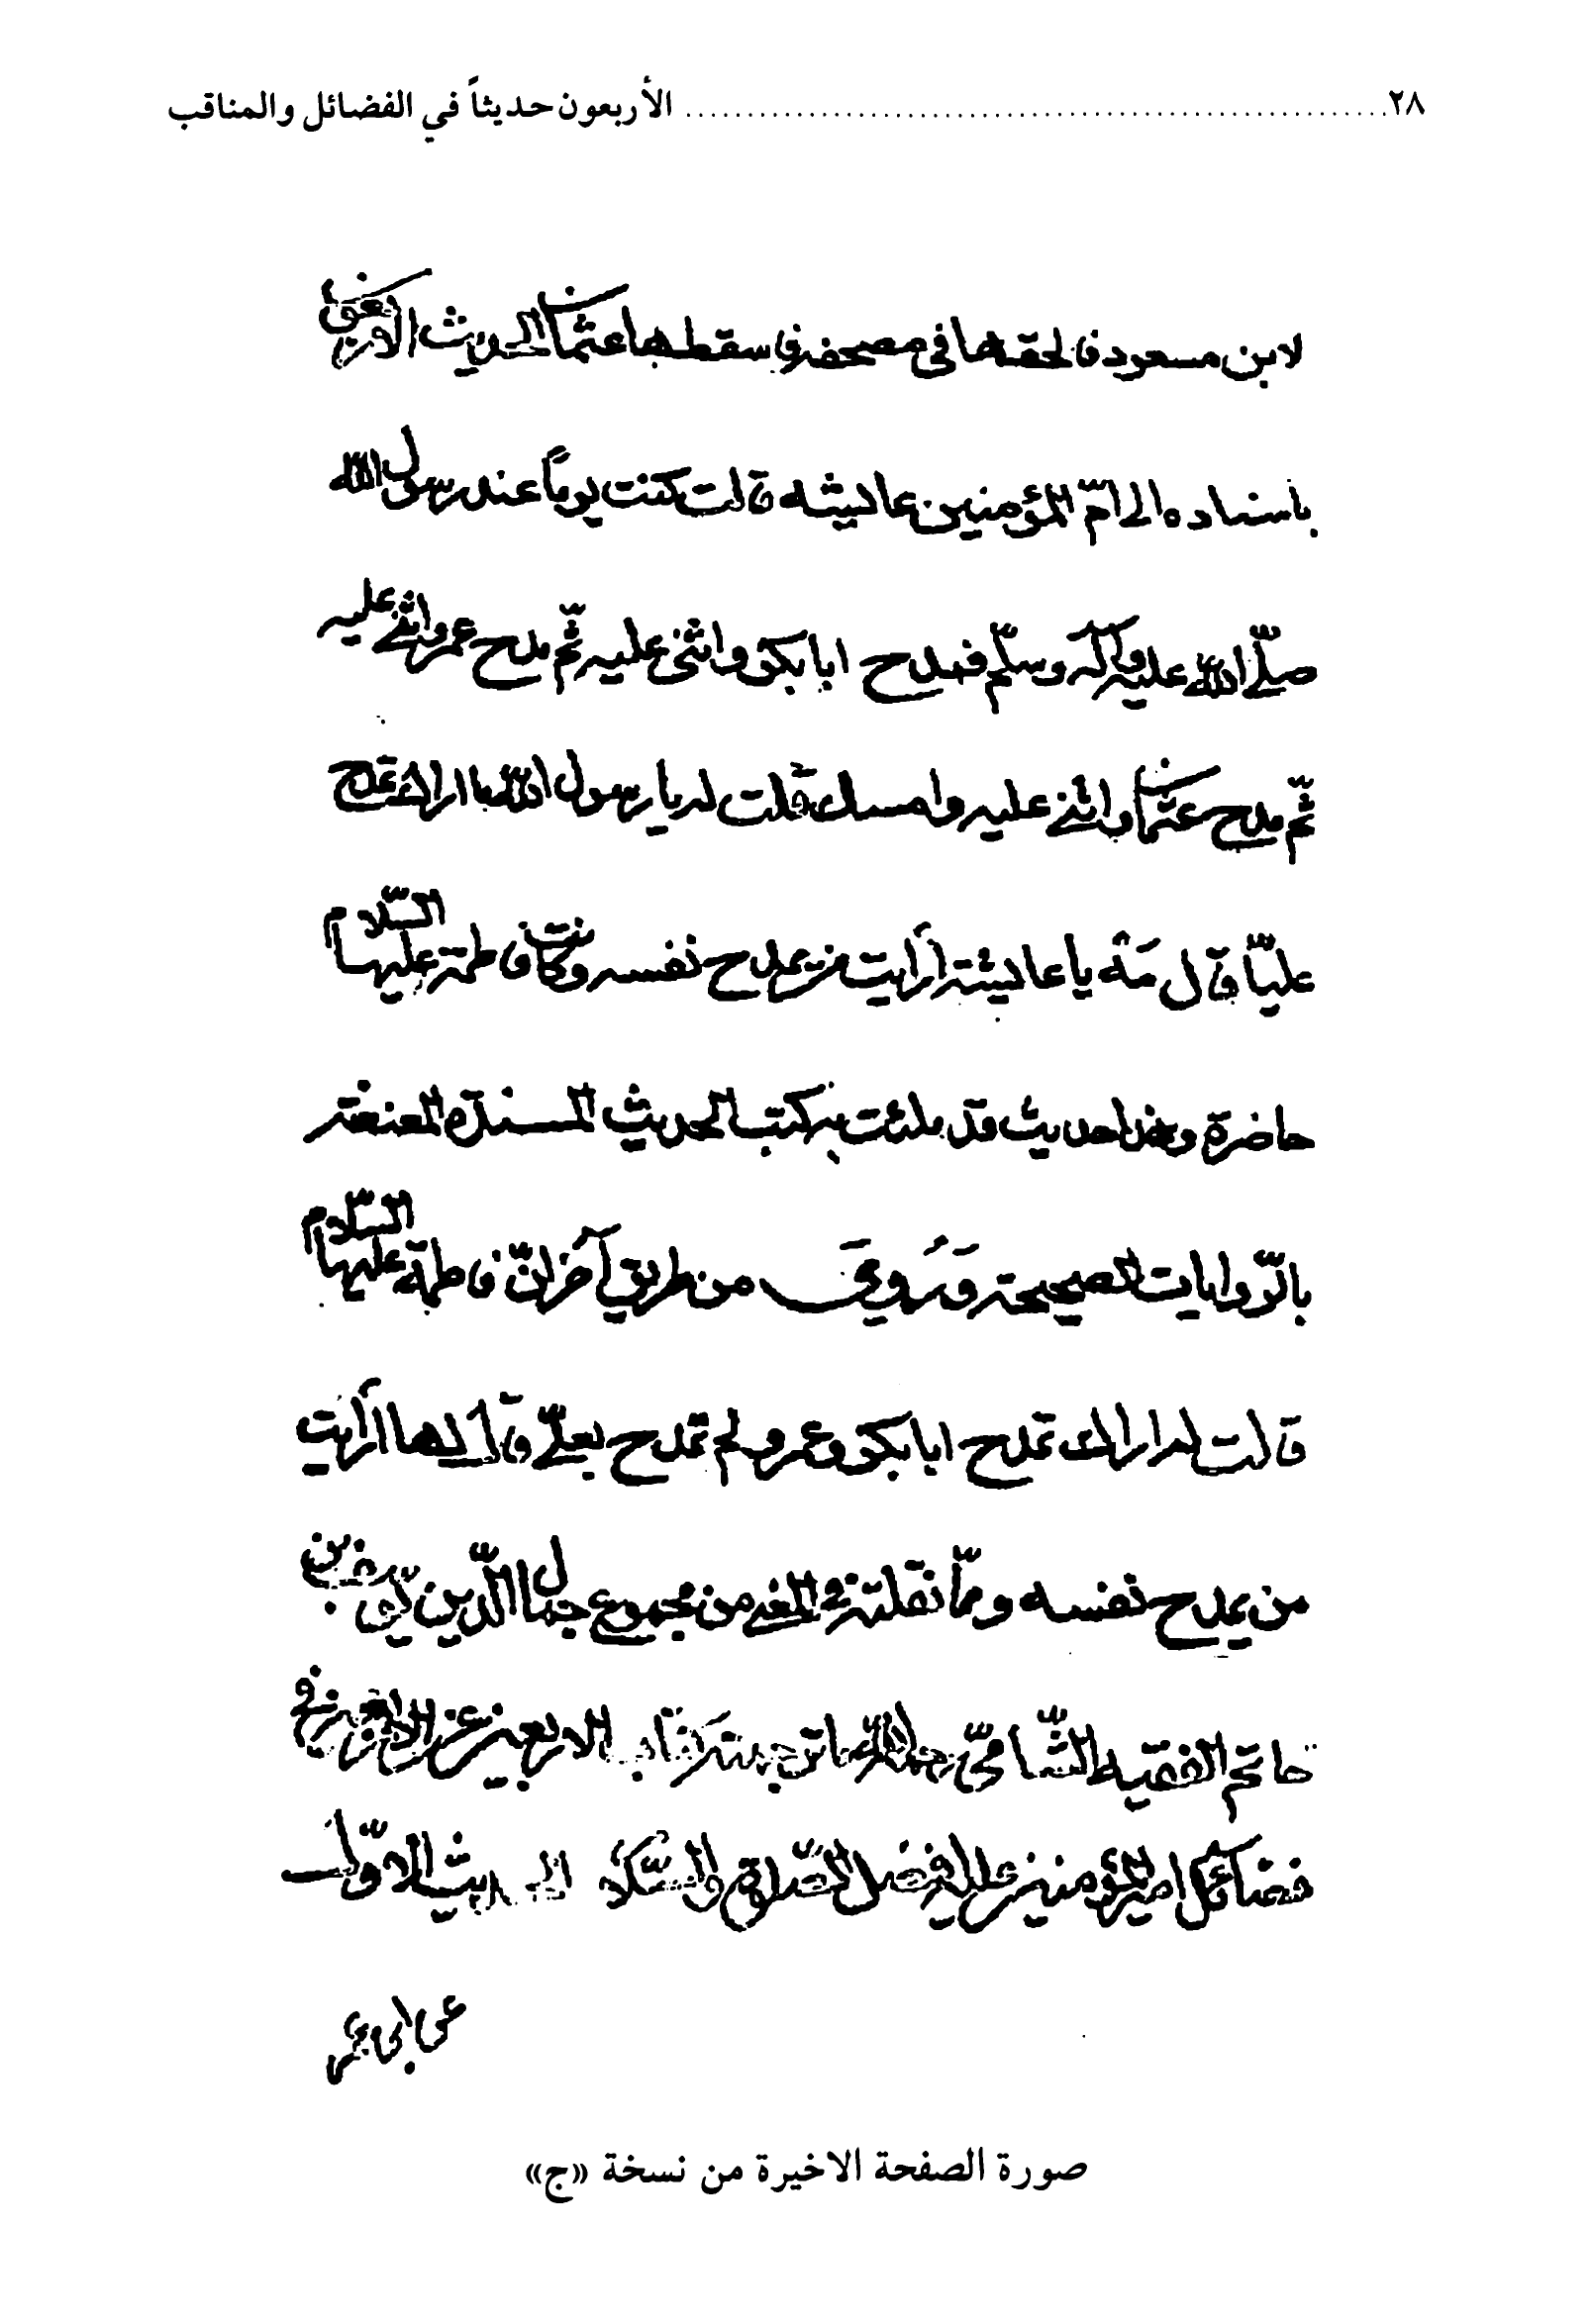 ٢٨ ........ الأربعون حديثاً في الفضائل والمناقب
لابن مسعود فالحقها في مصحفه فاسقطها عثمان الحديث الاربعون
باسناده الى امّ المؤمنين عايشه قالت كنت يوماً عند رسول الله
صلّى الله عليه وآله وسلّم فمدح ابا بكر واثنى عليه ثمّ مدح عمر واثنى عليه
ثمّ مدح عثمان واثنى عليه وامسك فقلت له يا رسول الله ما اراك تمدح
عليّاً قال مَه يا عايشة أرأيت من يمدح نفسه وكانت فاطمة عليها السّلام
حاضرة وهذا حديث قد ملئت به كتب الحديث المسندة المعنعنة
بالرّوايات الصحيحة وَرُوِيَ من طريق آخر انّ فاطمة عليها السّلام
قالت له اراك تمدح ابا بكر وعمر ولم تمدح بعليّ قال لها أرايت
من يمدح نفسه وممّا نقلته في المعنى من مجموع جمال الدّين يوسف بن
حاتم الفقيه الشّاميّ رحمه الله ما ترجمته كتاب الاربعين عن الاربعين في
فضائل امير المؤمنين عليه افضل الصّلوة والسّلام الحديث الاوّل
عن ابى عمر
صورة الصفحة الاخيرة من نسخة «ج»